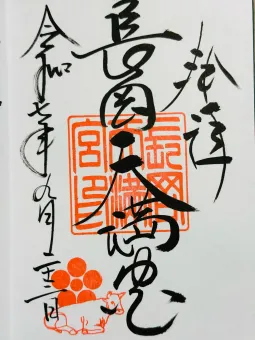 奉拝
長岡天満宮
令和七年九月二十二日
長岡天満宮印